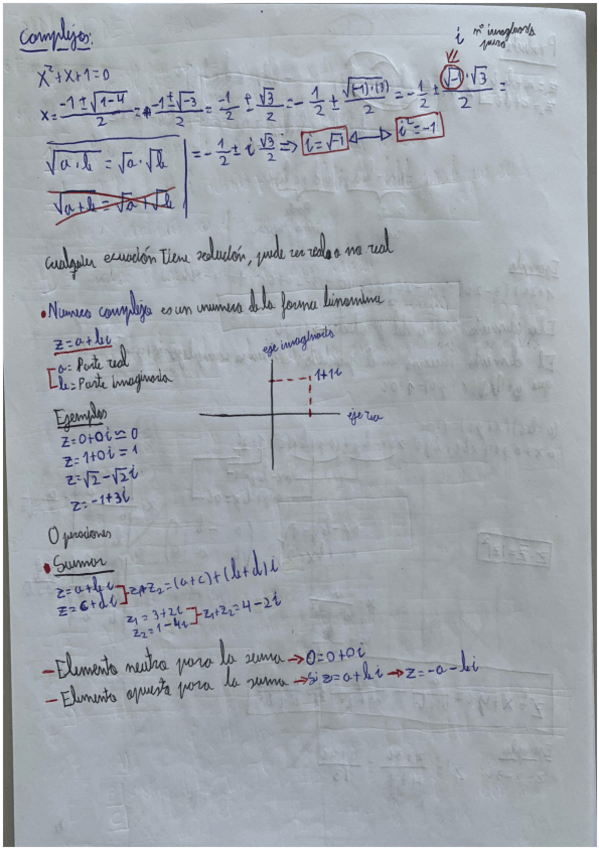 Complejos:
i nº imaginario puro
x²+x+1=0
x= (-1±√(1-4))/2 = (-1±√-3)/2 = -1/2 ± √3/2 = -1/2 ± √((-1)·(3))/2 = -1/2 ± (√-1·√3)/2 =
= -1/2 ± i √3/2 ⇒ i=√-1 ↔ i²=-1
√(a·b) = √a·√b
√(a+b) = √a+√b
Cualquier ecuación tiene solución, puede ser real o no real
• Numero complejo es un numero de la forma binomica
z=a+bi
a= Parte real
b= Parte imaginaria
eje imaginario
1+1i
eje real
Ejemplos
z=0+0i=0
z=1+0i=1
z=√2-√2i
z=-1+3i
Operaciones
• Sumar
z=a+bi
z=c+di
z₁+z₂=(a+c)+(b+d)i
z₁=3+2i
z₂=1-4i
z₁+z₂=4-2i
- Elemento neutro para la suma → 0=0+0i
- Elemento opuesto para la suma → si z=a+bi → z=-a-bi